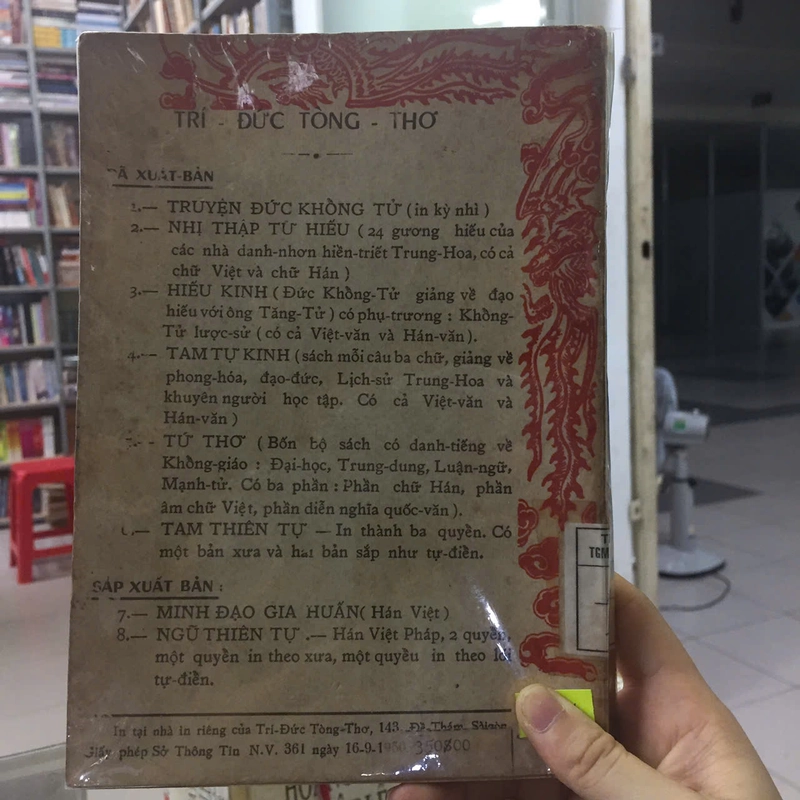 TRÍ - ĐỨC TÒNG - THƠ
ĐÃ XUẤT-BẢN
1.— TRUYỆN ĐỨC KHỒNG TỬ (in kỳ nhì)
2.— NHỊ THẬP TỨ HIẾU (24 gương hiếu của
các nhà danh-nhơn hiền-triết Trung-Hoa, có cả
chữ Việt và chữ Hán)
3.— HIẾU KINH (Đức Khồng-Tử giảng về đạo
hiếu với ông Tăng-Tử) có phụ-trương : Khồng-
Tử lược-sử (có cả Việt-văn và Hán-văn).
4.— TAM TỰ KINH (sách mỗi câu ba chữ, giảng về
phong-hóa, đạo-đức, Lịch-sử Trung-Hoa và
khuyên người học tập. Có cả Việt-văn và
Hán-văn)
TỨ THƠ (Bốn bộ sách có danh-tiếng về
Khồng-giáo : Đại-học, Trung-dung, Luận-ngữ,
Mạnh-tử. Có ba phần : Phần chữ Hán, phần
âm chữ Việt, phần diễn nghĩa quốc-văn).
TAM THIÊN TỰ — In thành ba quyền. Có
một bản xưa và hai bản sắp như tự-điền.
SẮP XUẤT BẢN :
7.— MINH ĐẠO GIA HUẤN (Hán Việt)
8.— NGŨ THIÊN TỰ .— Hán Việt Pháp, 2 quyền,
một quyền in theo xưa, một quyều in theo lối
tự-điền.
In tại nhà in riêng của Trí-Đức Tòng-Thơ, 143 Đề-Thám Sàigòn
Giấy phép Sở Thông Tin N.V. 361 ngày 16-9-
TGM